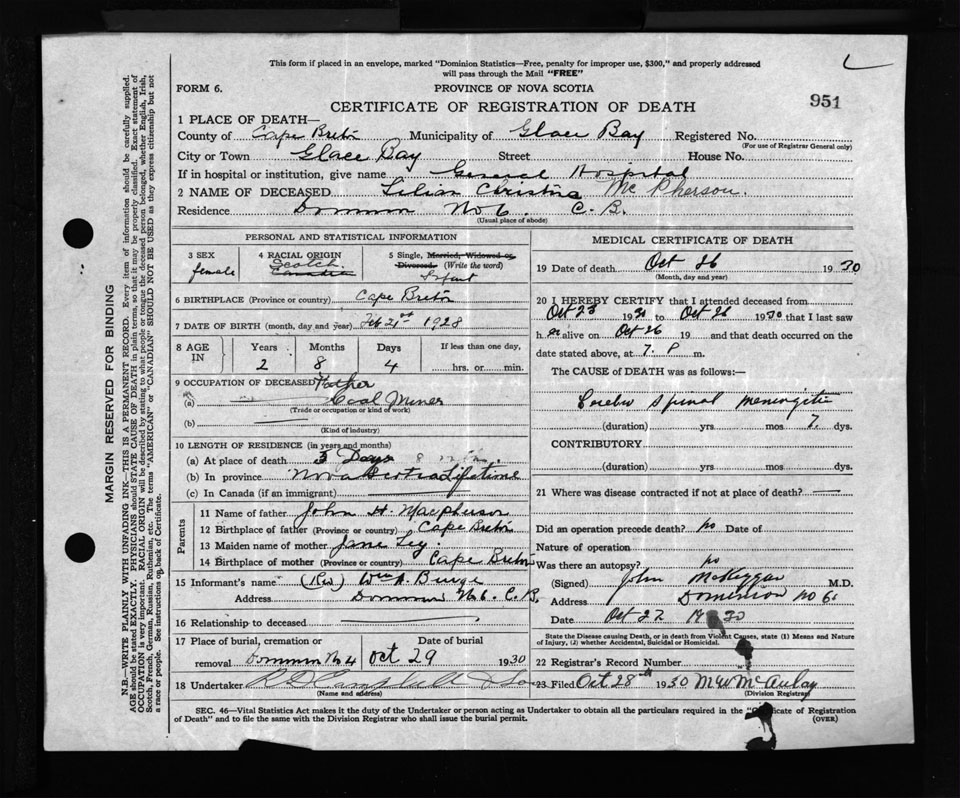 This form if placed in an envelope, marked "Dominion Statistics—Free, penalty for improper use, $300," and properly addressed
will pass through the Mail "FREE"
FORM 6.
PROVINCE OF NOVA SCOTIA
CERTIFICATE OF REGISTRATION OF DEATH
951
1 PLACE OF DEATH—
County of Cape Breton Municipality of Glace Bay Registered No.
(For use of Registrar General only)
City or Town Glace Bay Street House No.
If in hospital or institution, give name General Hospital
2 NAME OF DECEASED Lilian Christina McPherson.
Residence Dominion No 6. C. B.
(Usual place of abode)
MARGIN RESERVED FOR BINDING
N.B.—WRITE PLAINLY WITH UNFADING INK—THIS IS A PERMANENT RECORD. Every item of information should be carefully supplied.
AGE should be stated EXACTLY. PHYSICIANS should STATE CAUSE OF DEATH in plain terms, so that it may be properly classified. Exact statement of
OCCUPATION is very important. RACIAL ORIGIN will be described by stating to what people or tongue the deceased person belonged, whether English, Irish,
Scotch, French, German, Russian, Ruthenian, etc. The terms "AMERICAN" or "CANADIAN" SHOULD NOT BE USED as they express citizenship but not
a race or people. See instructions on back of Certificate.
PERSONAL AND STATISTICAL INFORMATION
3 SEX
female
4 RACIAL ORIGIN
Scotch
5 Single, Married, Widowed or
Divorced. (Write the word)
Infant
6 BIRTHPLACE (Province or country) Cape Breton
7 DATE OF BIRTH (month, day and year) Feb 21st 1928
8 AGE IN
Years Months Days If less than one day,
2 8 4 hrs. or min.
9 OCCUPATION OF DECEASED Father
(a) Coal Miner
(Trade or occupation or kind of work)
(b)
(Kind of industry)
10 LENGTH OF RESIDENCE (in years and months)
(a) At place of death 3 Days
(b) In province Nova Scotia Lifetime
(c) In Canada (if an immigrant)
Parents
11 Name of father John H. Macpherson
12 Birthplace of father (Province or country) Cape Breton
13 Maiden name of mother Jane
14 Birthplace of mother (Province or country) Cape Breton
15 Informant's name (Rev) Wm A. Burge
Address Dominion No 6. C. B.
16 Relationship to deceased
17 Place of burial, cremation or Date of burial
removal Dominion No 4 Oct 29 1930
18 Undertaker R D Campbell & Son
(Name and address)
MEDICAL CERTIFICATE OF DEATH
19 Date of death Oct 26 1930
(Month, day and year)
20 I HEREBY CERTIFY that I attended deceased from
Oct 23 1930 to Oct 26 1930 that I last saw
her alive on Oct 26 19 and that death occurred on the
date stated above, at 7. P m.
The CAUSE of DEATH was as follows:—
Cerebro Spinal Meningitis
(duration) yrs mos 7. dys.
CONTRIBUTORY
(duration) yrs. mos. dys.
21 Where was disease contracted if not at place of death?
Did an operation precede death? No Date of
Nature of operation
Was there an autopsy? No
(Signed) John McKeggan M.D.
Address Dominion No 6.
Date Oct 27 1930
State the Disease causing Death, or in death from Violent Causes, state (1) Means and Nature
of Injury, (2) whether Accidental, Suicidal or Homicidal.
22 Registrar's Record Number
23 Filed Oct 28th 1930 M W McAulay
(Division Registrar)
SEC. 46—Vital Statistics Act makes it the duty of the Undertaker or person acting as Undertaker to obtain all the particulars required in the "Certificate of Registration
of Death" and to file the same with the Division Registrar who shall issue the burial permit.
(OVER)